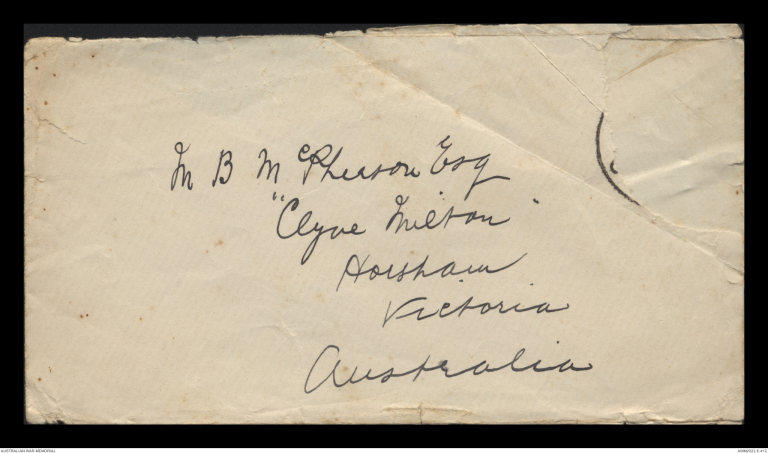 M B McPherson Esq
"Clyve Milton"
Horsham
Victoria
Australia
AUSTRALIAN WAR MEMORIAL